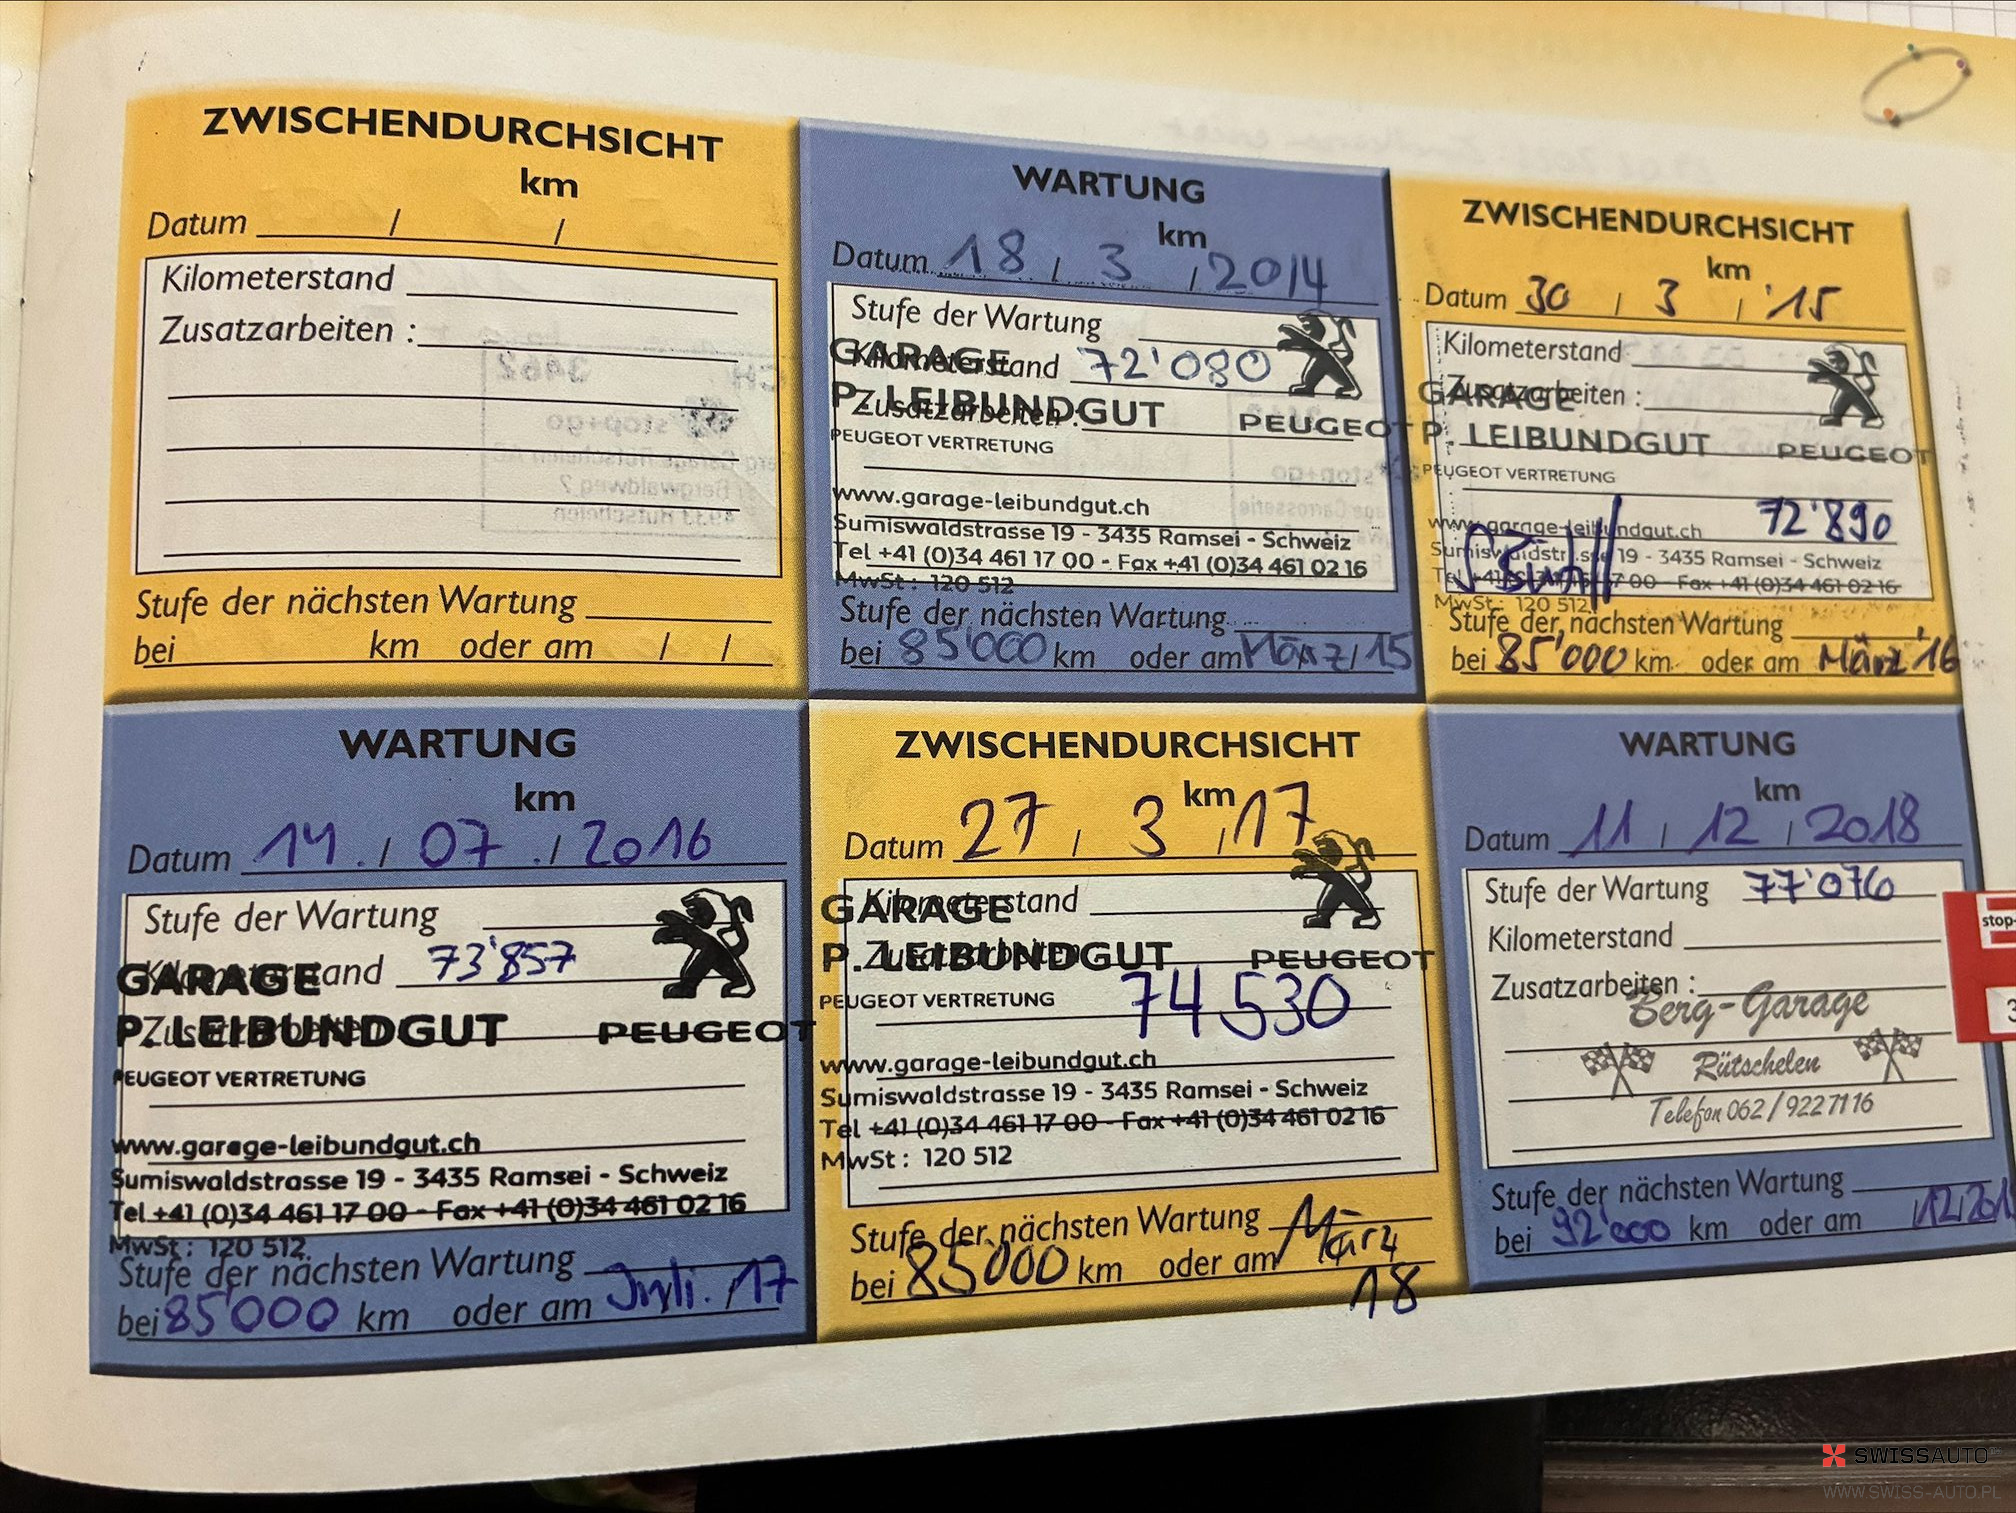 ZWISCHENDURCHSICHT
km
Datum / /
Kilometerstand
Zusatzarbeiten :
Stufe der nächsten Wartung
bei km oder am / /
WARTUNG
km
Datum 18 / 3 / 2014
Stufe der Wartung
Kilometerstand 72'080
GARAGE
Zusatzarbeiten :
P. LEIBUNDGUT PEUGEOT
PEUGEOT VERTRETUNG
www.garage-leibundgut.ch
Sumiswaldstrasse 19 - 3435 Ramsei - Schweiz
Tel +41 (0)34 461 17 00 - Fax +41 (0)34 461 02 16
MwSt : 120 512
Stufe der nächsten Wartung
bei 85'000 km oder am März / 15
ZWISCHENDURCHSICHT
km
Datum 30 / 3 / '15
Kilometerstand
Zusatzarbeiten :
GARAGE
P. LEIBUNDGUT PEUGEOT
PEUGEOT VERTRETUNG
72'890
www.garage-leibundgut.ch
Sumiswaldstrasse 19 - 3435 Ramsei - Schweiz
Tel +41 (0)34 461 17 00 - Fax +41 (0)34 461 02 16
MwSt : 120 512
Stufe der nächsten Wartung
bei 85'000 km oder am März '16
WARTUNG
km
Datum 14. / 07 . / 2016
Stufe der Wartung
Kilometerstand 73'857
GARAGE
Zusatzarbeiten
P. LEIBUNDGUT PEUGEOT
PEUGEOT VERTRETUNG
www.garage-leibundgut.ch
Sumiswaldstrasse 19 - 3435 Ramsei - Schweiz
Tel +41 (0)34 461 17 00 - Fax +41 (0)34 461 02 16
MwSt : 120 512
Stufe der nächsten Wartung
bei 85'000 km oder am Juli. / 17
ZWISCHENDURCHSICHT
km
Datum 27 / 3 / 17
Kilometerstand
GARAGE
Zusatzarbeiten
P. LEIBUNDGUT PEUGEOT
PEUGEOT VERTRETUNG 74530
www.garage-leibundgut.ch
Sumiswaldstrasse 19 - 3435 Ramsei - Schweiz
Tel +41 (0)34 461 17 00 - Fax +41 (0)34 461 02 16
MwSt : 120 512
Stufe der nächsten Wartung
bei 85000 km oder am März
18
WARTUNG
km
Datum 11 / 12 / 2018
Stufe der Wartung 77'076
Kilometerstand
Zusatzarbeiten :
Berg-Garage
Rütschelen
Telefon 062 / 922 71 16
Stufe der nächsten Wartung
bei 92'000 km oder am 12 201
stop-
3
SWISSAUTO
WWW.SWISS-AUTO.PL